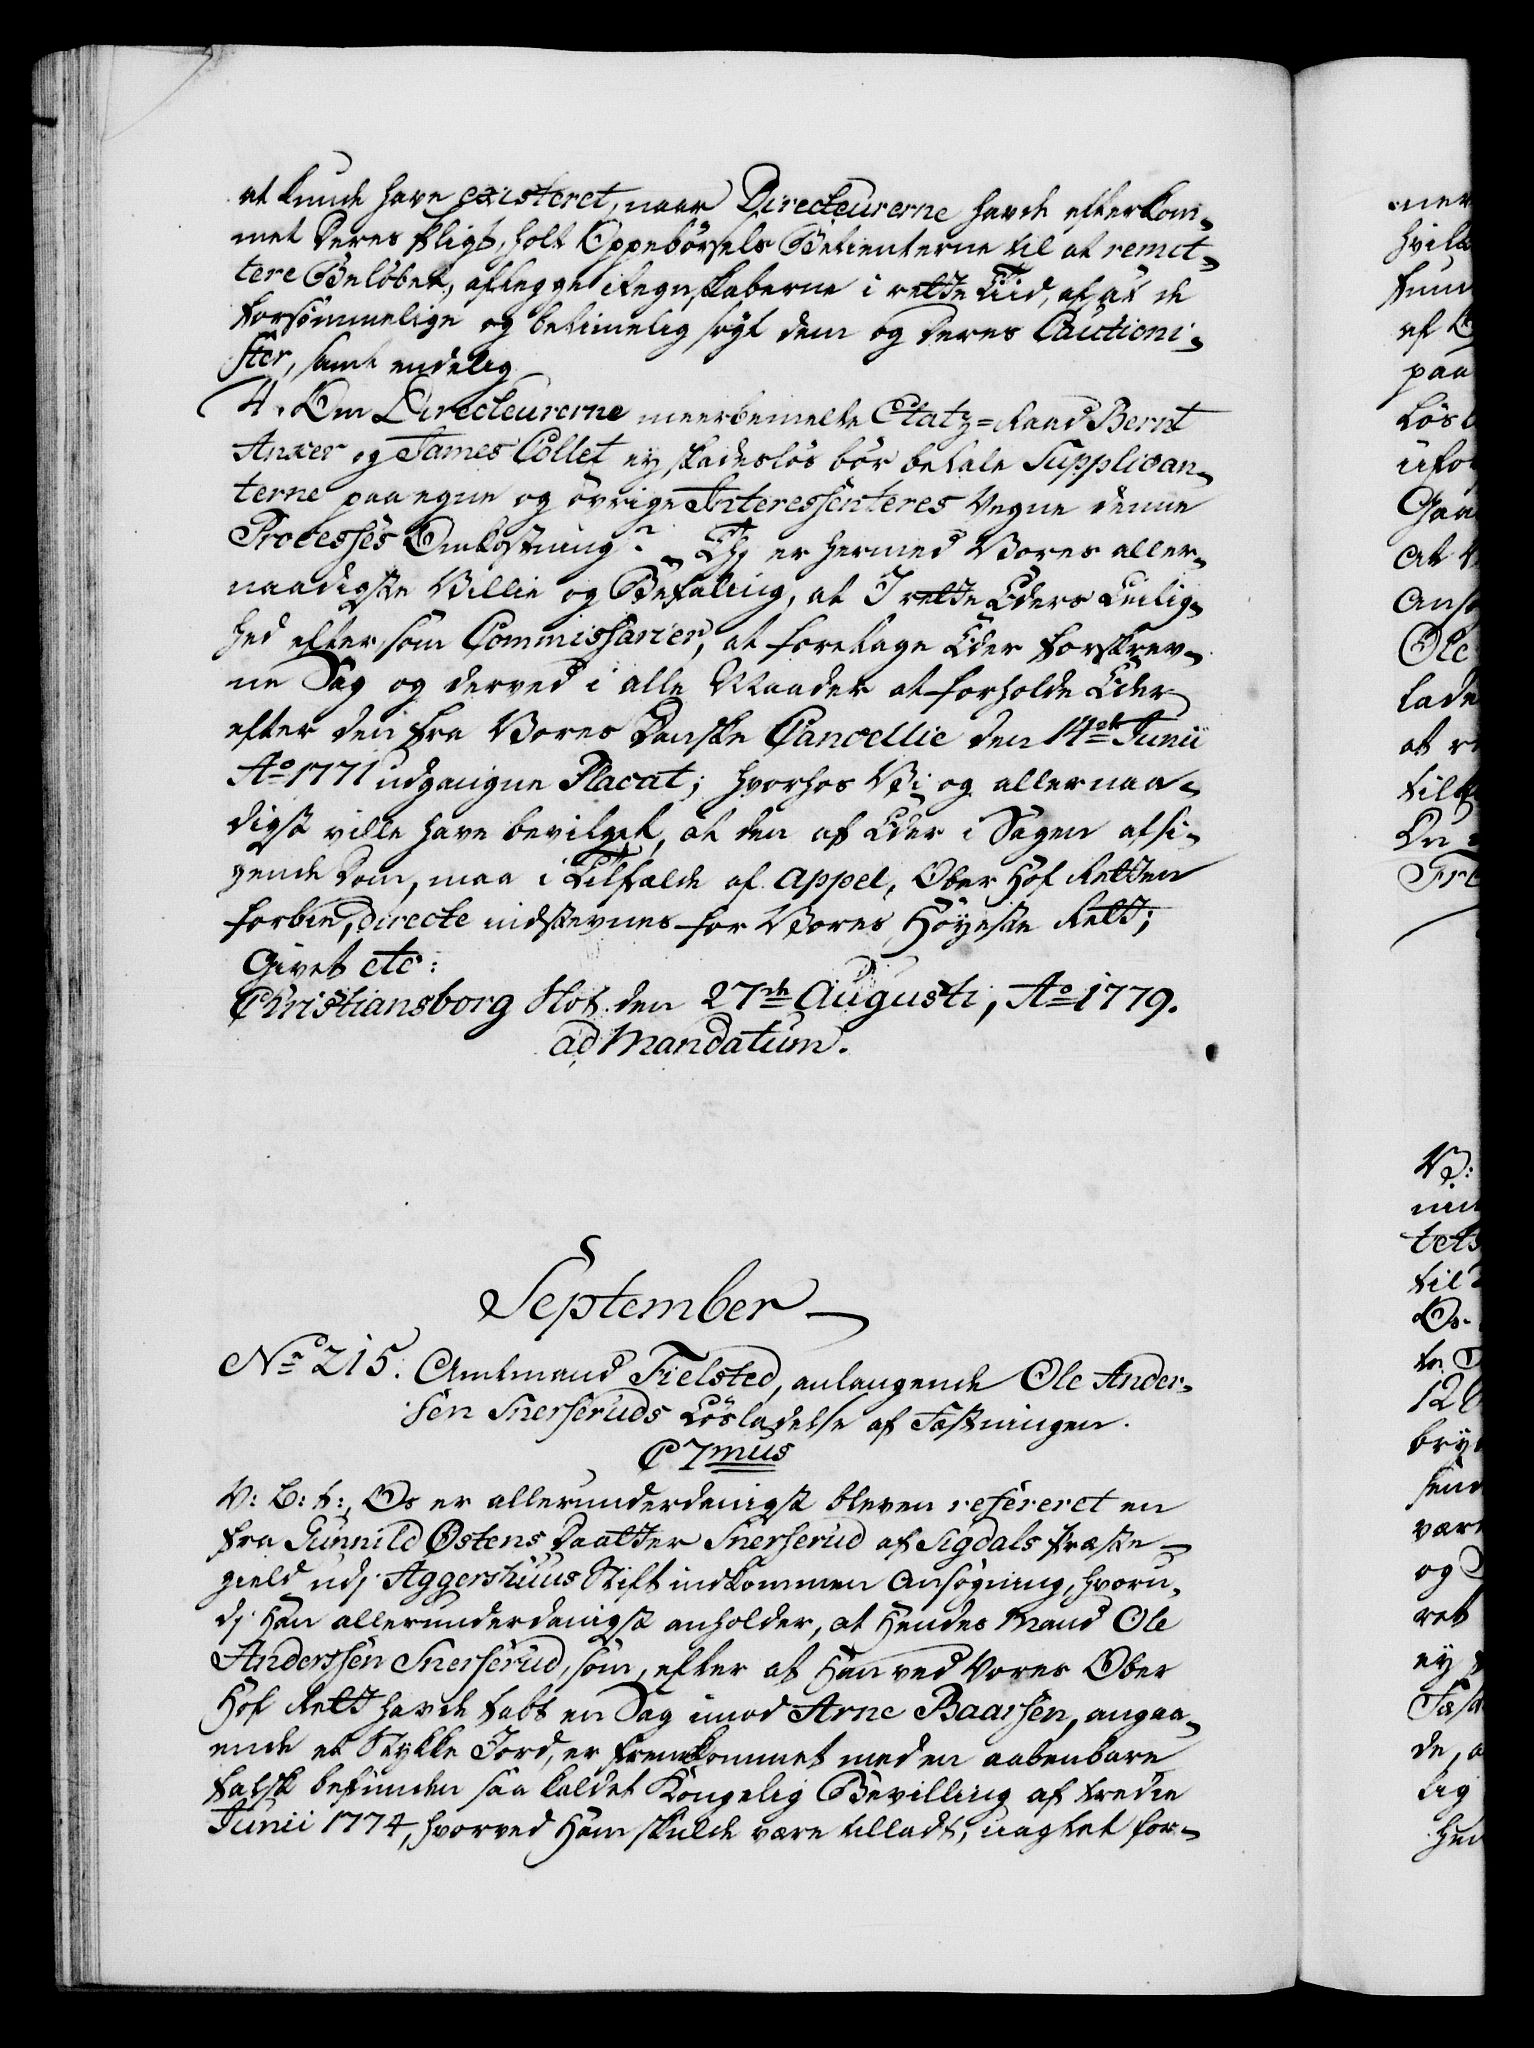 at kunde have existeret, naar Directeurerne havde efterkom-
met deres Pligt, holt Oppebörsels Betienterne til at remit-
tere Beløbet, aflegge Regnskaberne i rette Tiid, af de
forsömmelige og betimelig søgt dem og deres Cautioni-
ster, samt endelig
4. Om Directeurerne meerbemelte Etatz-Raad Bernt
Anker og James Collet ey skadeslös bör betale Supplican-
terne paa egne og övrige Interessenteres Vegne denne
Processes Omkostning? Thj er hermed Vores aller-
naadigste Villie og Befaling, at I rette Eders Leilig-
hed efter som Commissarier, at foretage Eder forskrev-
ne Sag og derved i alle Maader at forholde Eder
efter den fra Vores Danske Cancellie den 14de Junii
Ao 1771 udgangne Placat; hvorhos Vi og allernaa-
digst ville have bevilget, at den af Eder i Sagen afsi-
gende Dom, maa i Tilfælde af Appel, Ober Hof Retten
forbie, directe indstevnes for Vores Höyeste Rett;
Givet etc:
Christiansborg Slot den 27de Augusti, Ao 1779.
ad Mandatum.
September
No 215. Amtmand Fielsted, anlangende Ole Ander-
sen Snerseruds Löslædelse af Fæstningen.
C 7mus
V: G: t:, Os er allerunderdanigst bleven refereret en
fra Gunnild Østens Daatter Snerserud af Sigdals Præste-
gield udj Aggershuus Stift indkommen Ansögning, hvoru-
dj Hun allerunderdanigst anholder, at Hendes Mand Ole
Anderssen Snerserud, som, efter at Han ved Vores Ober
Hof Rett havde tabt en Sag imod Arne Baarsen, angaa-
ende et Stykke Jord, er fremkommet med en aabenbare
falsk befunden saa kaldet Kongelig Bevilling af tredie
Junii 1774, hvorved Ham skulde være tilladt, uagtet for-